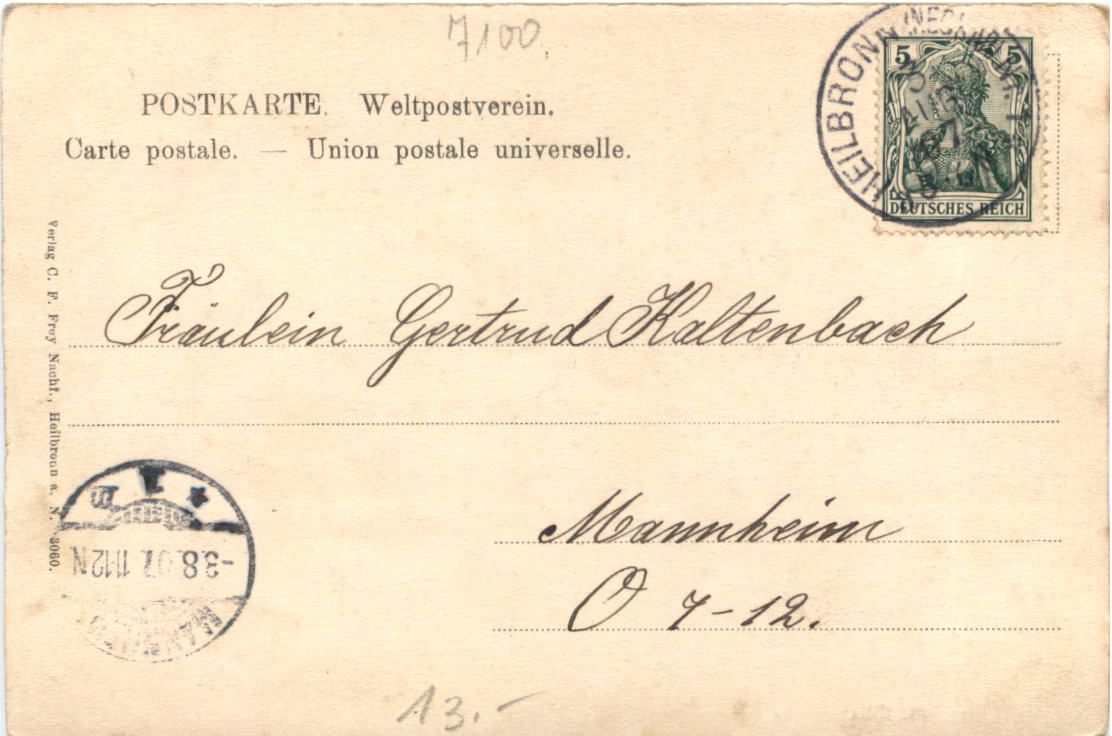 7100
POSTKARTE. Weltpostverein.
Carte postale. — Union postale universelle.
HEILBRONN (NECKAR)
3
AUG
07
5 5
DEUTSCHES REICH
Verlag C. F. Frey Nachf., Heilbronn a. N. 8060.
Fräulein Gertrud Kaltenbach
Mannheim
O 7-12.
* 1 m
-3.8.07. 11-12N
MANNHEIM
13.-